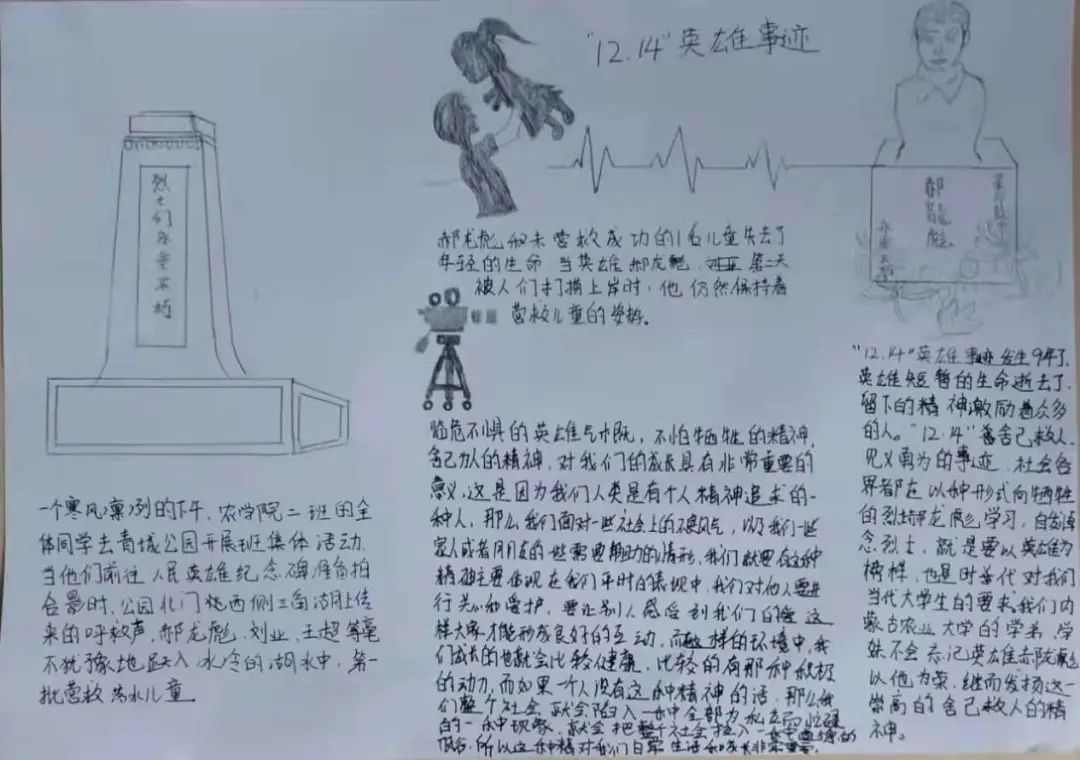 "12.14"英雄事迹
烈士们永垂不朽
郝龍彪
郝龙彪和未营救成功的1名儿童失去了
年轻的生命 当英雄郝龙彪 第二天
被人们打捞上岸时,他仍然保持着
营救儿童的姿势。
一个寒风凛冽的下午,农学院二班的全
体同学去青城公园开展班集体活动.
当他们前往人民英雄纪念碑准备拍
合影时,公园北门 西侧三角湖上传
来的呼救声.郝龙彪、刘业、王超等毫
不犹豫地跃入冰冷的湖水中,第一
批营救落水儿童
临危不惧的英雄气概,不怕牺牲的精神,
舍己为人的精神,对我们的成长具有非常重要的
意义,这是因为我们人类是有个人精神追求的一
种人,那么我们面对一些社会上的不良风气,以及我们一些
家人或者朋友的一些需要帮助的情形,我们就要在这种
精神主要体现在我们平时的表现中,我们对他人要进
行关心和爱护,要让别人感受到我们的 这
样大家才能形成良好的互动,而 这样的环境中,我
们成长的也就会比较健康,比较的有那种积极
的动力,而如果一个人没有这种精神的话,那么我
们整个社会就会陷入一种全部为
的一种现象,就会把整个社会拉入一种 的
所以这种精对我们日常生活和成长非常重要。
"12.14"英雄事迹发生9年了,
英雄短暂的生命逝去了,
留下的精神激励着众多
的人。"12.14" 舍己救人、
见义勇为的事迹,社会各
界都在以种形式向牺牲
的烈士郝龙彪学习,自发悼
念烈士,就是要以英雄为
榜样,也是时代对我们
当代大学生的要求,我们内
蒙古农业大学的学弟、学
妹不会忘记英雄郝龙彪
以他为荣,继而发扬这一
崇高的舍己救人的精
神。